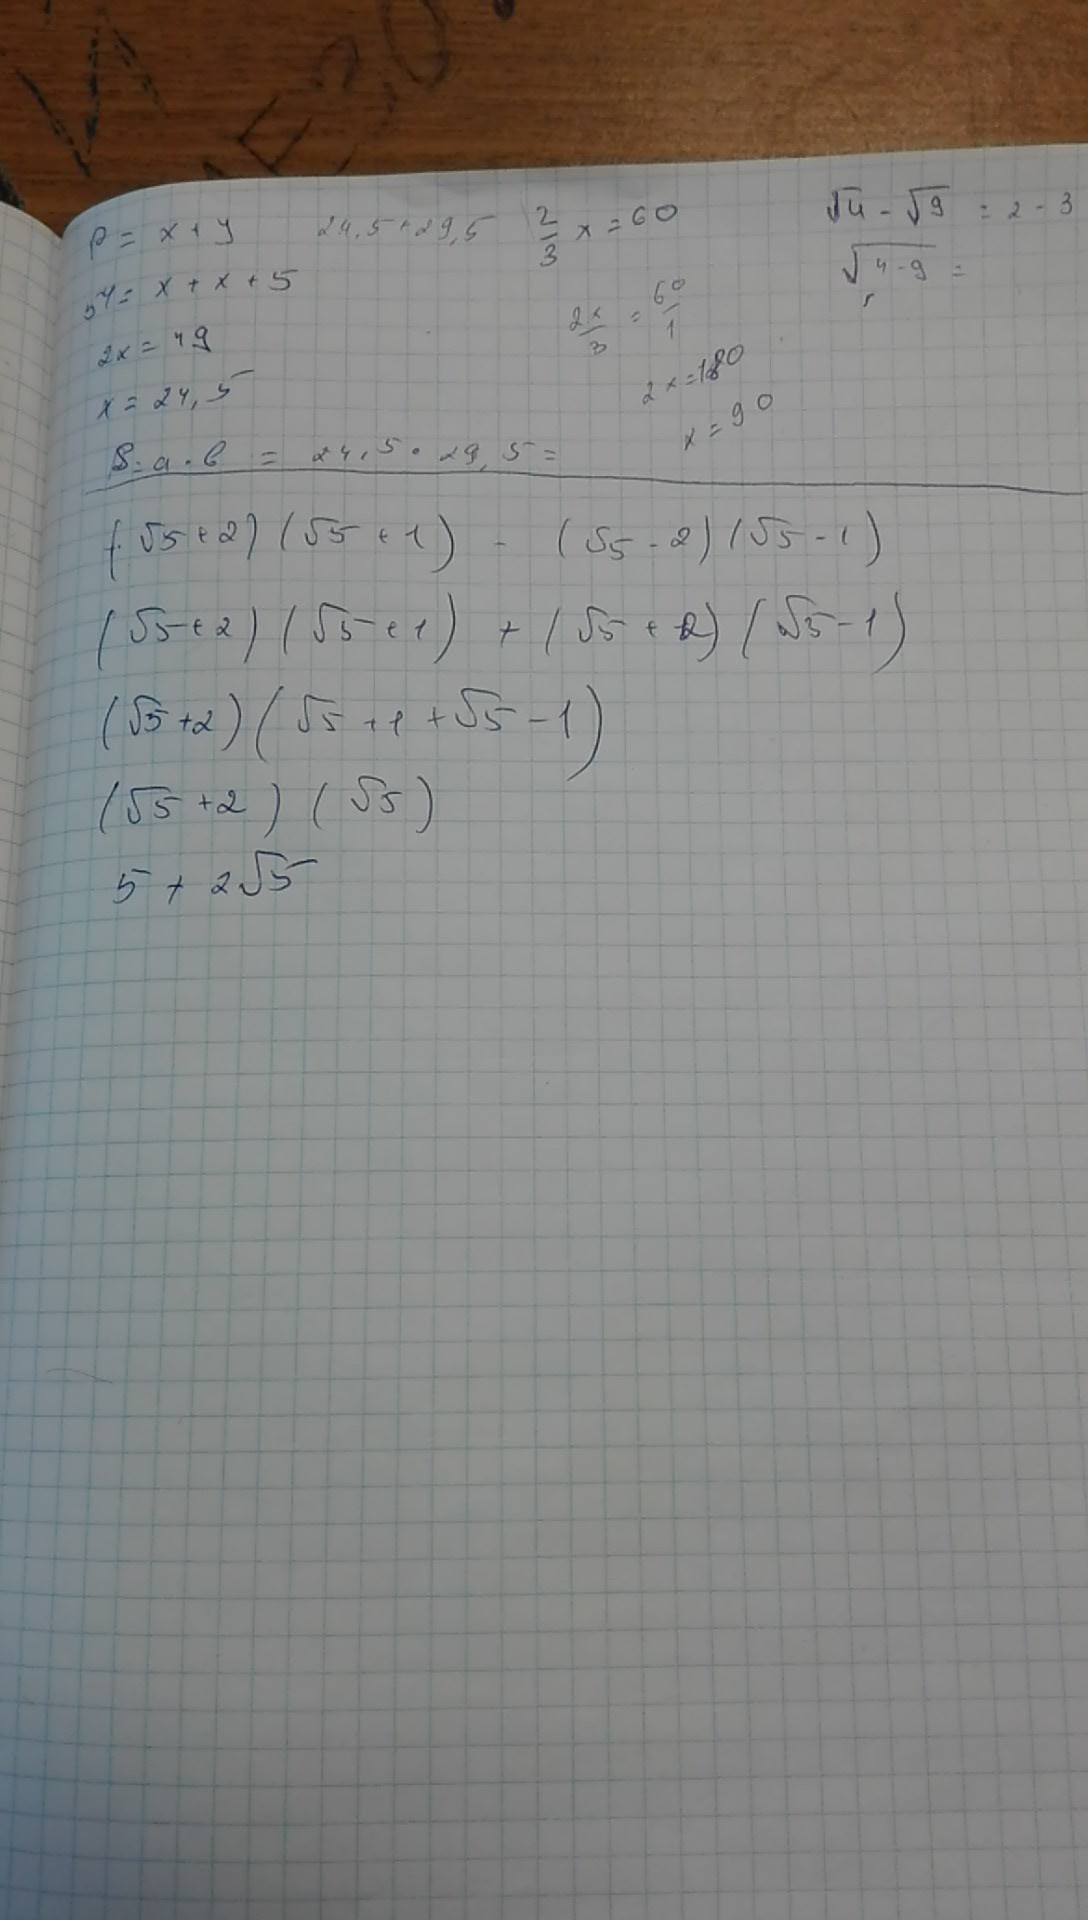 P = x + y
54 = x + x + 5
2x = 49
x = 24,5
S = a · b = 24,5 · 29,5 =
24,5 + 29,5
2/3 x = 60
2x/3 = 60/1
2x = 180
x = 90
√4 - √9 = 2 - 3
√4-9 =
(√5 + 2) (√5 + 1) - (√5 - 2) (√5 - 1)
(√5 + 2) (√5 + 1) + (√5 + 2) (√5 - 1)
(√5 + 2) (√5 + 1 + √5 - 1)
(√5 + 2) (√5)
5 + 2√5